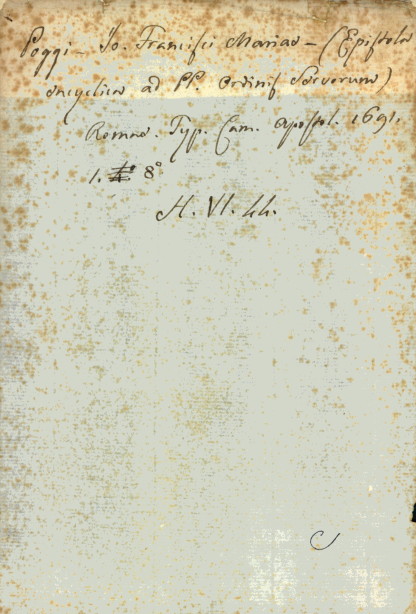 Poggi - Io. Francisci Mariae - (Epistola
encyclica ad PP. Ordinis Servorum)
Romae. Typ. Cam. Apostol. 1691.
1. 8°
H. VI. 44.